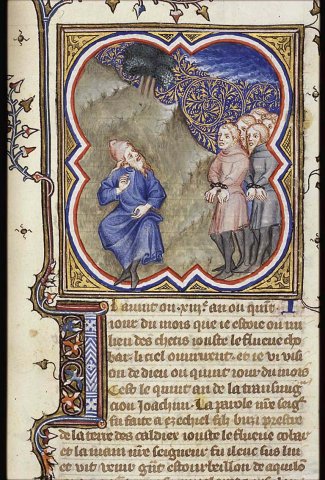 Il avint ou .xxx.e an ou quart
iour du mois que ie estoie ou mi
lieu des chetis iouste le flueue cho
bar. li ciel ouurirent. et ie vi visi
on de dieu ou quint iour du mois
Cest le quint an de la transmig
cion Joachim. La parole nre seig
fu faite a ezechiel filz buzi prestre
de la terre des caldiex iouste le flueue cobar
et la main nre seigneur fu ilecus sus lui
et vit venir estourbeillon de aquilo